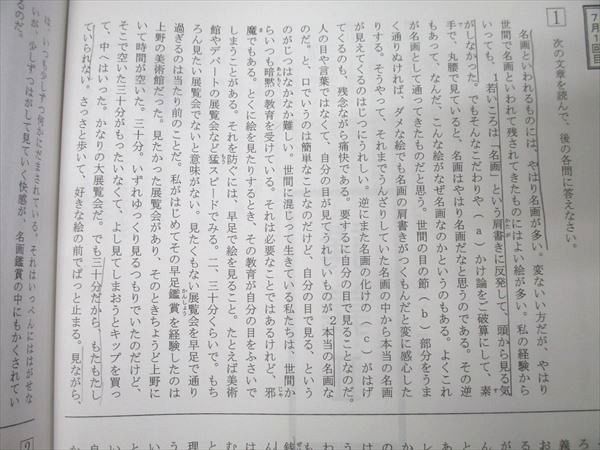 7月1回目
1 次の文章を読んで、後の各問に答えなさい。
名画といわれるものには、やはり名画が多い。変ないい方だが、やはり
世間で名画といわれて残されてきたものにはよい絵が多い。私の経験から
いっても、1若いころは「名画」という肩書きに反発して、頭から見る気
がしなかった。でもそんなこだわりや(a)かけ論をご破算にして、素
手で、丸腰で見ていると、名画はやはり名画だなと思うのである。その逆
もあって、なんだ、こんな絵がなぜ名画なのかというのもある。よくこれ
が名画として通ってきたものだと思う。世間の目の節(b)部分をうま
く通りぬければ、ダメな絵でも名画の肩書きがつくもんだと変に感心した
りする。そうやって、それまでうんざりしていた名画の中から本当の名画
が見えてくるのはじつにうれしい。逆にまた名画の化けの(c)がはげ
てくるのも、残念ながら痛快である。要するに自分の目で見ることなのだ。
人の目や言葉ではなくて、自分の目が見てうれしいものが2本当の名画な
のだ。と、口でいうのは簡単なことなのだけど、自分の目で見る、という
のがじつはなかなか難しい。世間に混じって生きている私たちは、世間か
らいつも暗黙の教育を受けている。それは必要なことではあるけれど、邪
魔でもある。とくに絵を見たりするとき、その教育が自分の目をふさいで
しまうことがある。それを防ぐには、早足で絵を見ること。たとえば美術
館やデパートの展覧会など猛スピードでみる。二、三十分くらいで。もち
ろん見たい展覧会でないと意味がない。見たくもない展覧会を早足で通り
過ぎるのは当たり前のことだ。私がはじめてその早足鑑賞を経験したのは
上野の美術館だった。見たかった展覧会があり、そのときちょうど上野に
いて時間が空いた。三十分。いずれゆっくり見るつもりでいたのだけど、
そこで空いた三十分がもったいなくて、よし見てしまおうとキップを買っ
て、中へはいった。かなりの大展覧会だ。でも三十分だから、もたもたし
ていられない。さっさと歩いて、好きな絵の前でぱっと止まる。見ながら、
は、いつも少しずつ何かにだまされている。それはいっぺんにははがせな
いが、少しずつはがして見ていく快感が、名画鑑賞の中にもかくされてい
るのだ。